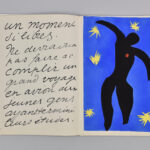 un moment
di libres.
Ne devrait-on
pas faire ac-
complir un
grand voyage
en avion aux
jeunes gens
ayant terminé
leurs études.